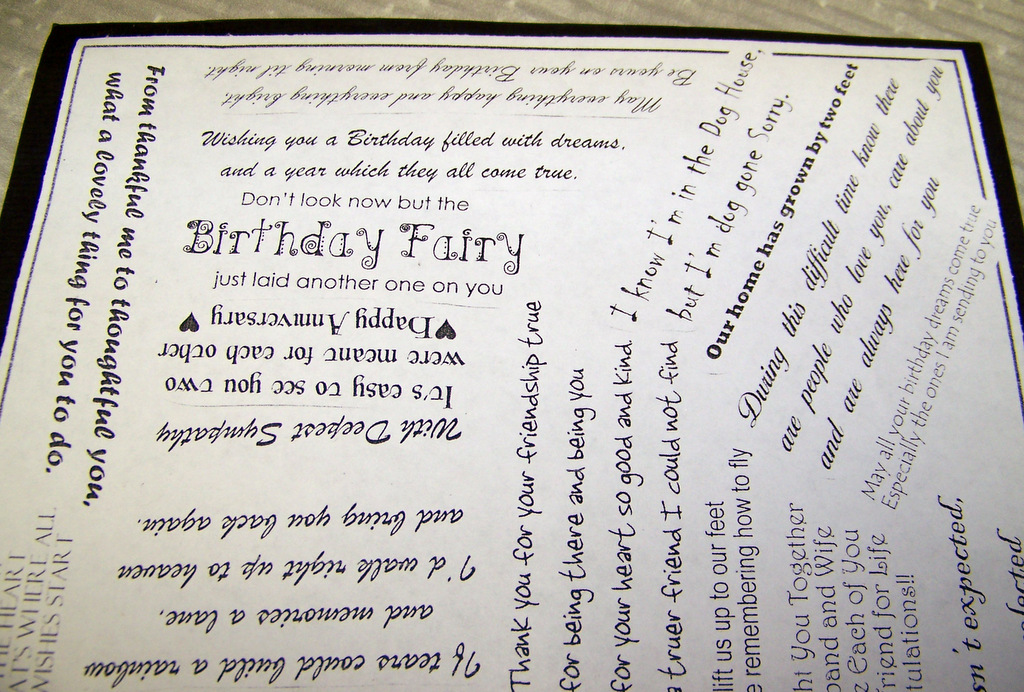 May everything happy and everything bright
Be yours on your Birthday from morning til night.
Wishing you a Birthday filled with dreams,
and a year which they all come true.
Don't look now but the
Birthday Fairy
just laid another one on you
It's easy to see you two
were meant for each other
Happy Anniversary
With Deepest Sympathy
If tears could build a rainbow
and memories a lane,
I'd walk right up to heaven
and bring you back again.
From thankful me to thoughtful you,
what a lovely thing for you to do.
HEART
WHERE ALL
WISHES START
Thank you for your friendship true
for being there and being you
for your heart so good and kind.
a truer friend I could not find
I know I'm in the Dog House,
but I'm dog gone Sorry.
Our home has grown by two feet
During this difficult time know there
are people who love you, care about you
and are always here for you
May all your birthday dreams come true
Especially the ones I am sending to you
lift us up to our feet
remembering how to fly
You Together
and Wife
Each of You
for Life
expected,